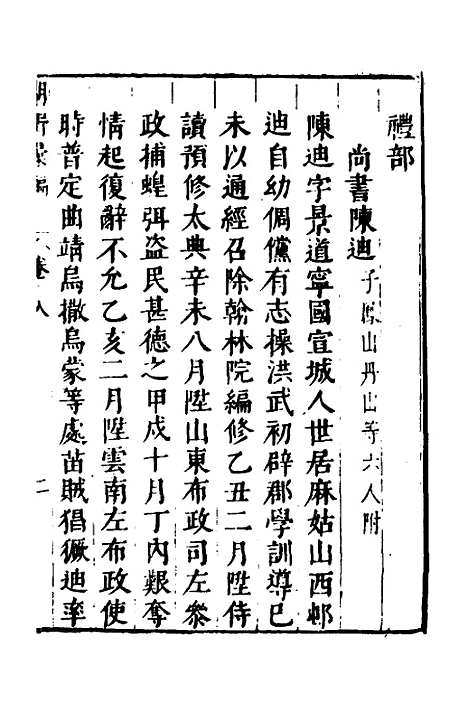 禮部
尚書陳迪子鳳山丹山等六人附
陳迪字景道寧國宣城人世居麻姑山西邨
迪自幼倜儻有志操洪武初辟郡學訓導已
未以通經召除翰林院編修乙丑二月陞侍
讀預修太典辛未八月陞山東布政司左叅
政捕蝗弭盗民甚德之甲戌十月丁內艱奪
情起復辭不允乙亥二月陞雲南左布政使
時普定曲靖烏撒烏蒙等處苗賊猖獗迪率
卷八 二